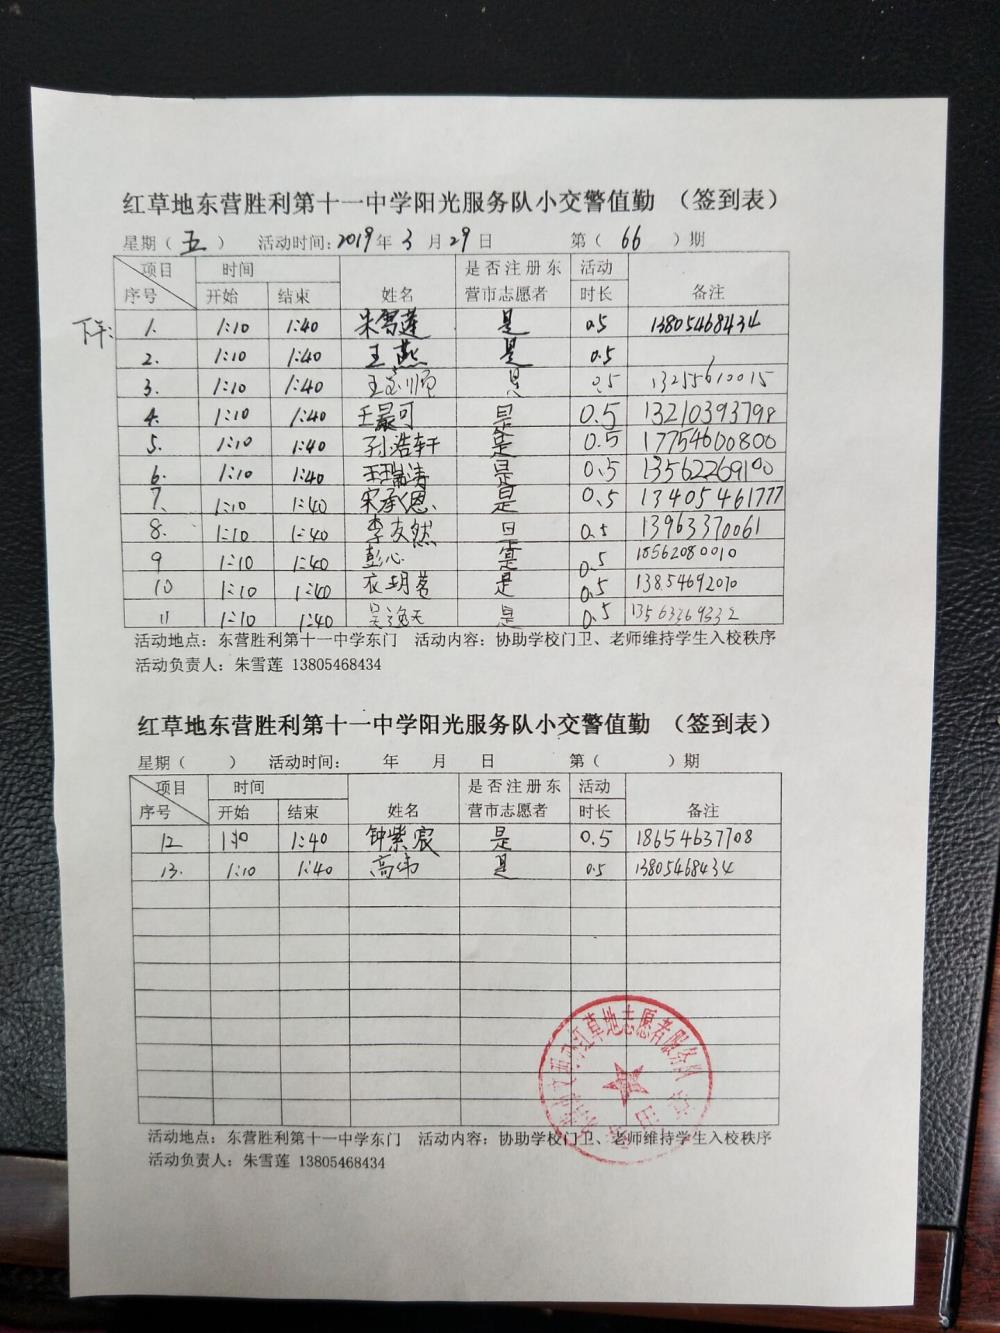 红草地东营胜利第十一中学阳光服务队小交警值勤 （签到表）
星期（ 五 ） 活动时间：2019年 3 月 29 日 第（ 66 ）期
项目 序号 时间 开始 结束 姓名 是否注册东营市志愿者 活动时长 备注
下午：
1. 1:10 1:40 朱雪莲 是 0.5 13805468434
2. 1:10 1:40 王燕 是 0.5
3. 1:10 1:40 是 0.5 13255610015
4. 1:10 1:40 王晨可 是 0.5 13210393798
5. 1:10 1:40 孙浩轩 是 0.5 17754600800
6. 1:10 1:40 王瑞涛 是 0.5 13562269100
7. 1:10 1:40 宋承恩 是 0.5 13405461777
8. 1:10 1:40 李友然 是 0.5 13963370061
9 1:10 1:40 彭心 是 0.5 18562080010
10 1:10 1:40 是 0.5 13854692010
11 1:10 1:40 吴逸天 是 0.5
活动地点：东营胜利第十一中学东门 活动内容：协助学校门卫、老师维持学生入校秩序
活动负责人：朱雪莲 13805468434
红草地东营胜利第十一中学阳光服务队小交警值勤 （签到表）
星期（ ） 活动时间： 年 月 日 第（ ）期
项目 序号 时间 开始 结束 姓名 是否注册东营市志愿者 活动时长 备注
12 1:10 1:40 钟紫宸 是 0.5 18654637708
13. 1:10 1:40 高伟 是 0.5 13805468434
红草地志愿者服务队
活动地点：东营胜利第十一中学东门 活动内容：协助学校门卫、老师维持学生入校秩序
活动负责人：朱雪莲 13805468434